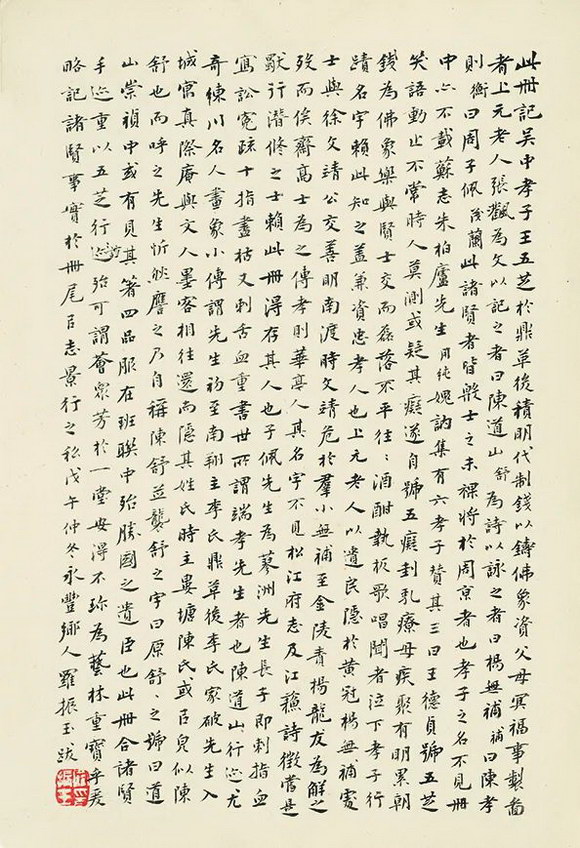 此冊記吳中孝子王五芝於鼎革後積明代制錢以鑄佛象資父母冥福事製圖
者上元老人張觀為文以記之者曰陳道山舒為詩以詠之者曰楊無補補曰陳孝
則衡曰周子佩茂蘭此諸賢者皆殷士之未祼將於周京者也孝子之名不見冊
中亦不載蘇志朱柏廬先生用純媿訥集有六孝子贊其三曰王德貞號五芝
笑語動止不常時人莫測或疑其癡遂自號五癡刲乳療母疾聚有明累朝
錢為佛象樂與賢士交而磊落不平往〻酒酣執板歌唱聞者泣下孝子行
蹟名字賴此知之蓋兼資忠孝人也上元老人以遺民隱於黃冠楊無補處
士與徐文靖公交善明南渡時文靖危於羣小無補至金陵責楊龍友為解之
歿而俟齋高士為之傳孝則華亭人其名字不見松江府志及江蘇詩徵當是
獸行潛修之士賴此冊得存其人也子佩先生為蓼洲先生長子即刺指血
寫訟冤疏十指盡枯又刺舌血重書世所謂端孝先生者也陳道山行迹尤
奇練川名人畫象小傳謂先生初至南翔主李氏鼎革後李氏家破先生入
城寓真際庵與文人墨客相往還而隱其姓氏時主婁塘陳氏或以皃似陳
舒也而呼之先生忻然應之乃自稱陳舒並襲舒之字曰原舒〻之號曰道
山崇禎中或有見其箸四品服在班聯中殆勝國之遺臣也此冊合諸賢
手迹重以五芝行迹殆可謂薈眾芳於一堂毋得不珍為藝林重寶乎爰
略記諸賢事實於冊尾以志景行之私戊午仲冬永豐鄉人羅振玉跋